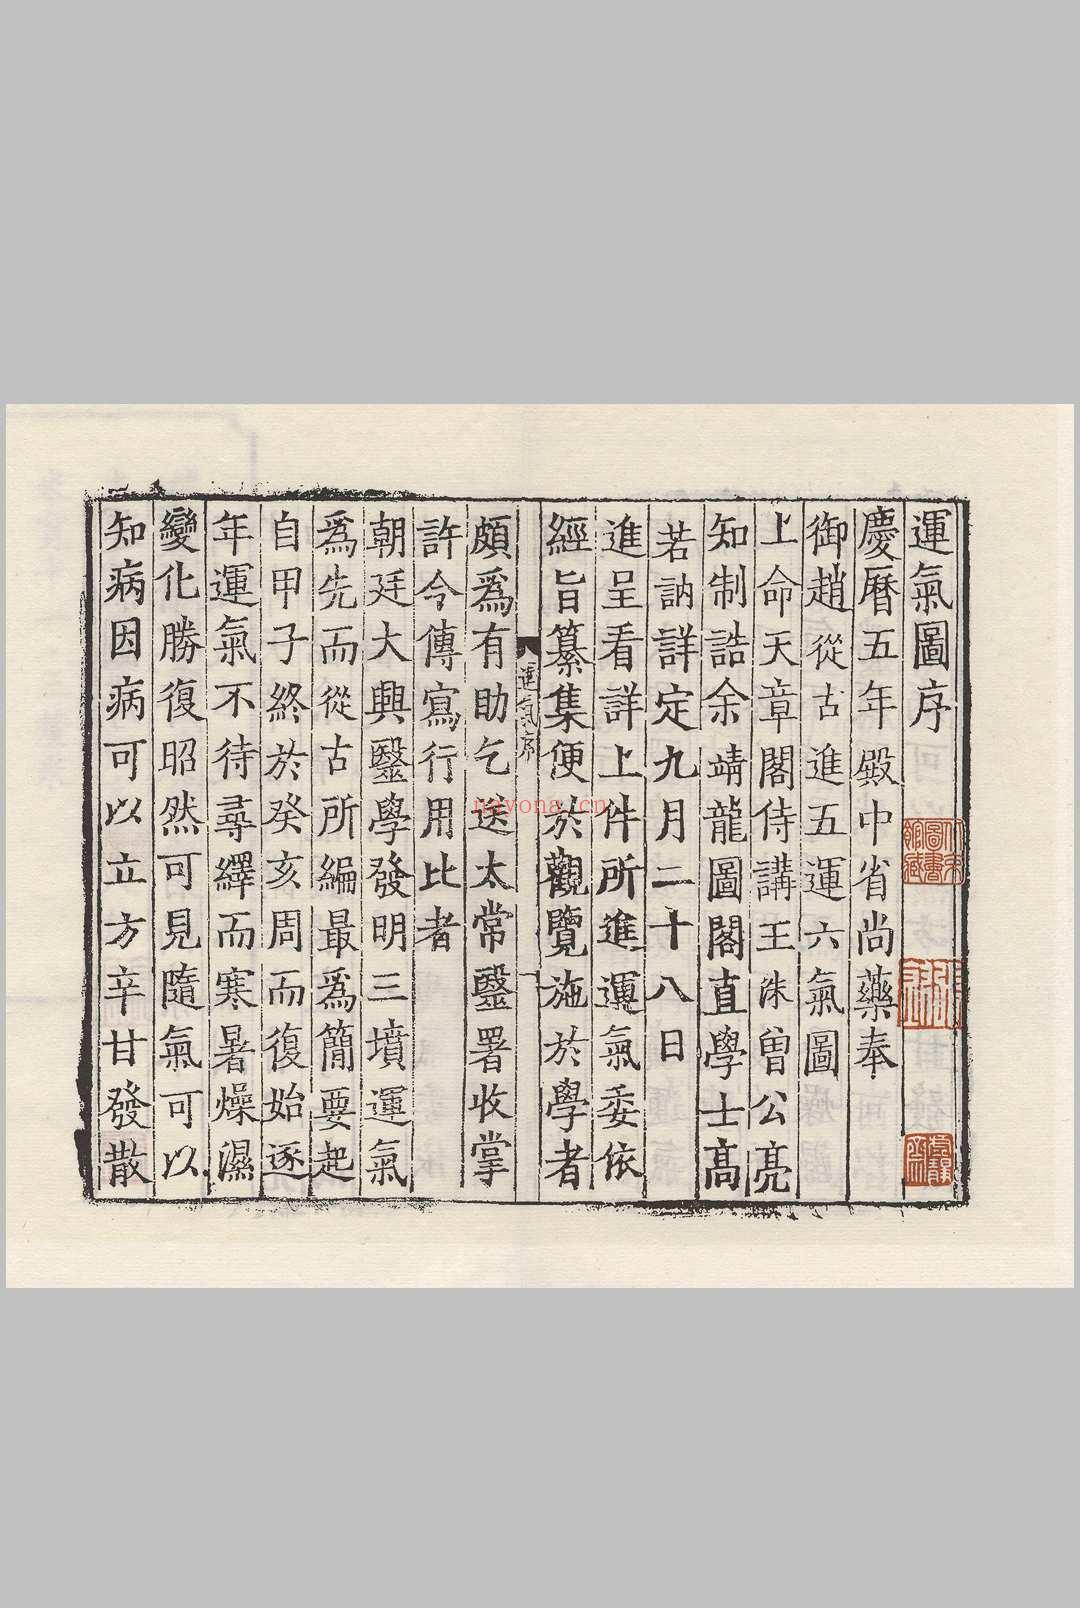 運氣圖序
慶曆五年殿中省尚藥奉
御趙從古進五運六氣圖
上命天章閣侍講王洙曾公亮
知制誥余靖龍圖閣直學士高
若訥詳定九月二十八日
進呈看詳上件所進運氣委依
經旨纂集便於觀覽施於學者
運氣序
頗爲有助乞送太常醫署收掌
許令傳寫行用比者
朝廷大興醫學發明三墳運氣
爲先而從古所編最爲簡要起
自甲子終於癸亥周而復始逐
年運氣不待尋繹而寒暑燥濕
變化勝復昭然可見隨氣可以
知病因病可以立方辛甘發散
nayona.cn